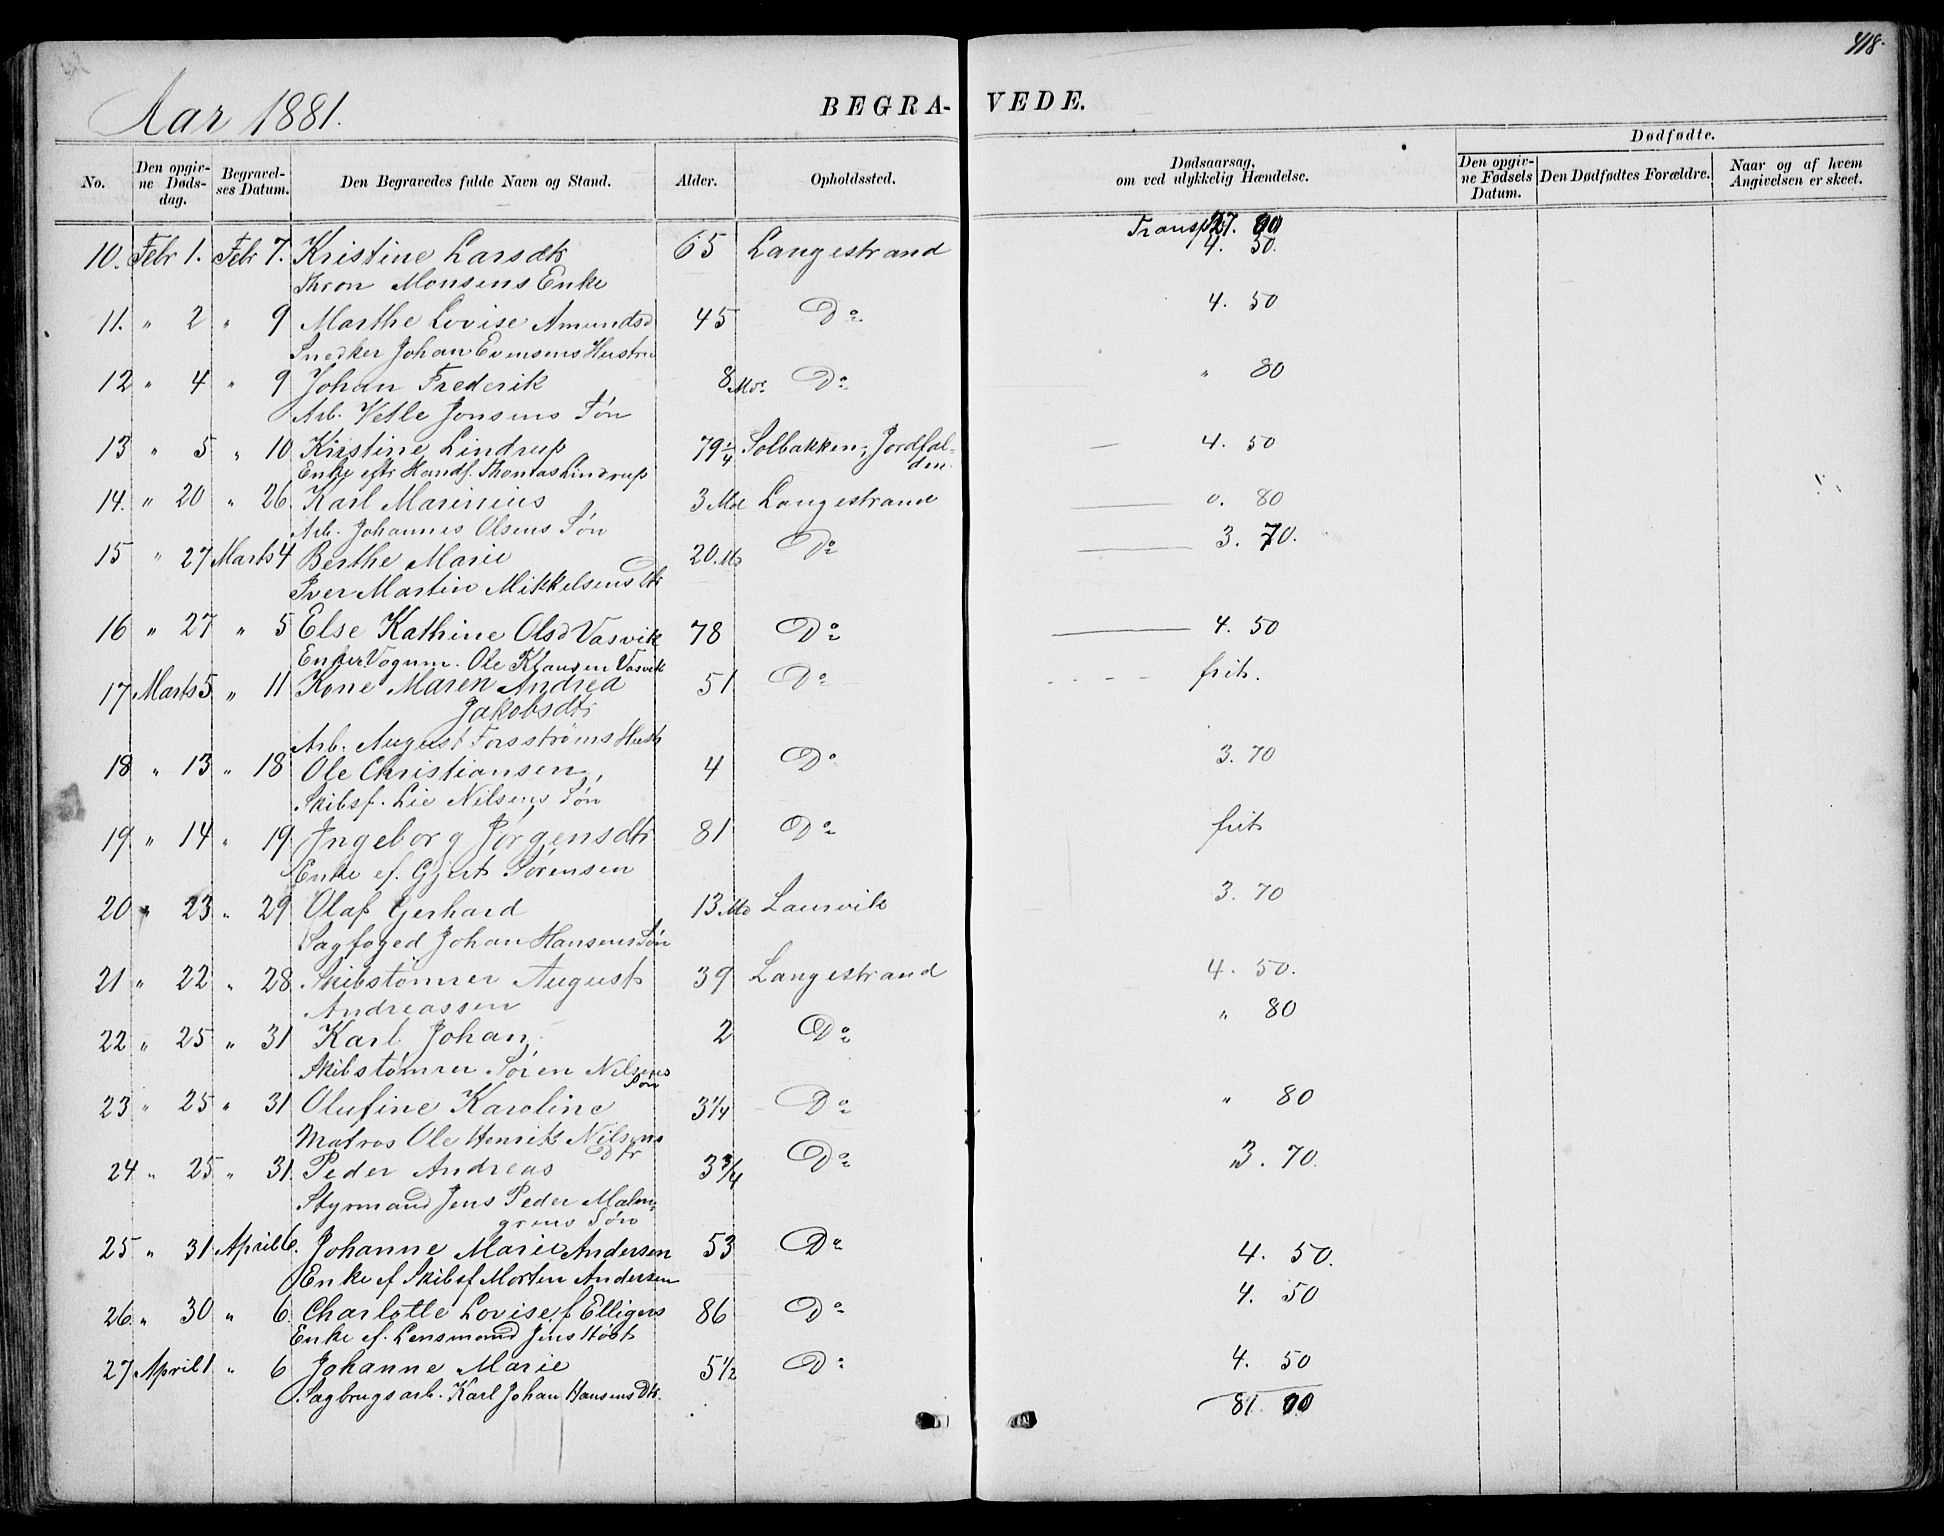 418.
Aar 1881.
BEGRA- VEDE.
No. Den opgivne Dødsdag. Begravelses Datum. Den Begravedes fulde Navn og Stand. Alder. Opholdssted. Dødsaarsag, om ved ulykkelig Hændelse. Dødfødte. Den opgivne Fødsels Datum. Den Dødfødtes Forældre. Naar og af hvem Angivelsen er skeet.
Transp.
10. Febr 1. Febr 7. Kristine Larsdtr 65 Langestrand 4. 50.
Thron Monsens Enke
11. " 2 " 9 Marthe Lovise Amundsd 45 Do. 4. 50
Snedker Johan Evensens Hustru
12 " 4 " 9 Johan Frederik 8 Mdr Do " 80
Arb. Vetle Jonsens Søn
13 " 5 " 10 Kristine Lindrup 79 1/4 Solbakken, Jordfal- 4. 50
Enke eftr Handf. Thomas Lindrup den.
14. " 20 " 26. Karl Marineus 3 Md Langestrand 0. 80
Arb. Johannes Olsens Søn
15 " 27 Marts 4 Berthe Marie 20 Md Do 3. 70.
Iver Martin Mikkelsens Dtr
16 " 27 " 5 Else Kathine Olsd Vasvik 78 Do 4. 50
Enke Vognm. Ole Klausen Vasvik
17 Marts 5 " 11 Kone Maren Andrea 51 Do frit.
Jakobsdtr
Arb. August Forsstrøms Hustr
18 " 13 " 18 Ole Christiansen, 4 Do 3. 70
Skibsf. Lie Nilsens Søn
19 " 14 " 19 Ingeborg Jørgensdtr 81 Do frit
Enke ef. Gjert Sørensen
20 " 23 " 29 Olaf Gerhard 13 Md Laurvik 3. 70
Sagfoged Johan Hansens Søn
21 " 22 " 28 Skibstømrer August 39 Langestrand 4. 50.
Andreassen
22 " 25 " 31 Karl Johan 2 Do " 80
Skibstømrer Søren Nilsens
Søn
23 " 25 " 31 Olufine Karoline 3 1/4 Do " 80
Matros Ole Henrik Nilsens
Dtr
24 " 25 " 31 Peder Andreas 3 3/4 Do 3. 70.
Styrmand Jens Peder Malm-
grens Søn
25 " 31 April 6. Johanne Marie Andersen 53 Do 4. 50.
Enke ef Skibsf Morten Andersen
26 " 30 " 6 Charlotte Lovise f Elligers 86 Do 4. 50
Enke ef. Lensmand Jens Høst
27 April 1 " 6 Johanne Marie 5 1/2 Do 4. 50
Sagbrugsarb. Karl Johan Hansens Dtr.
81.